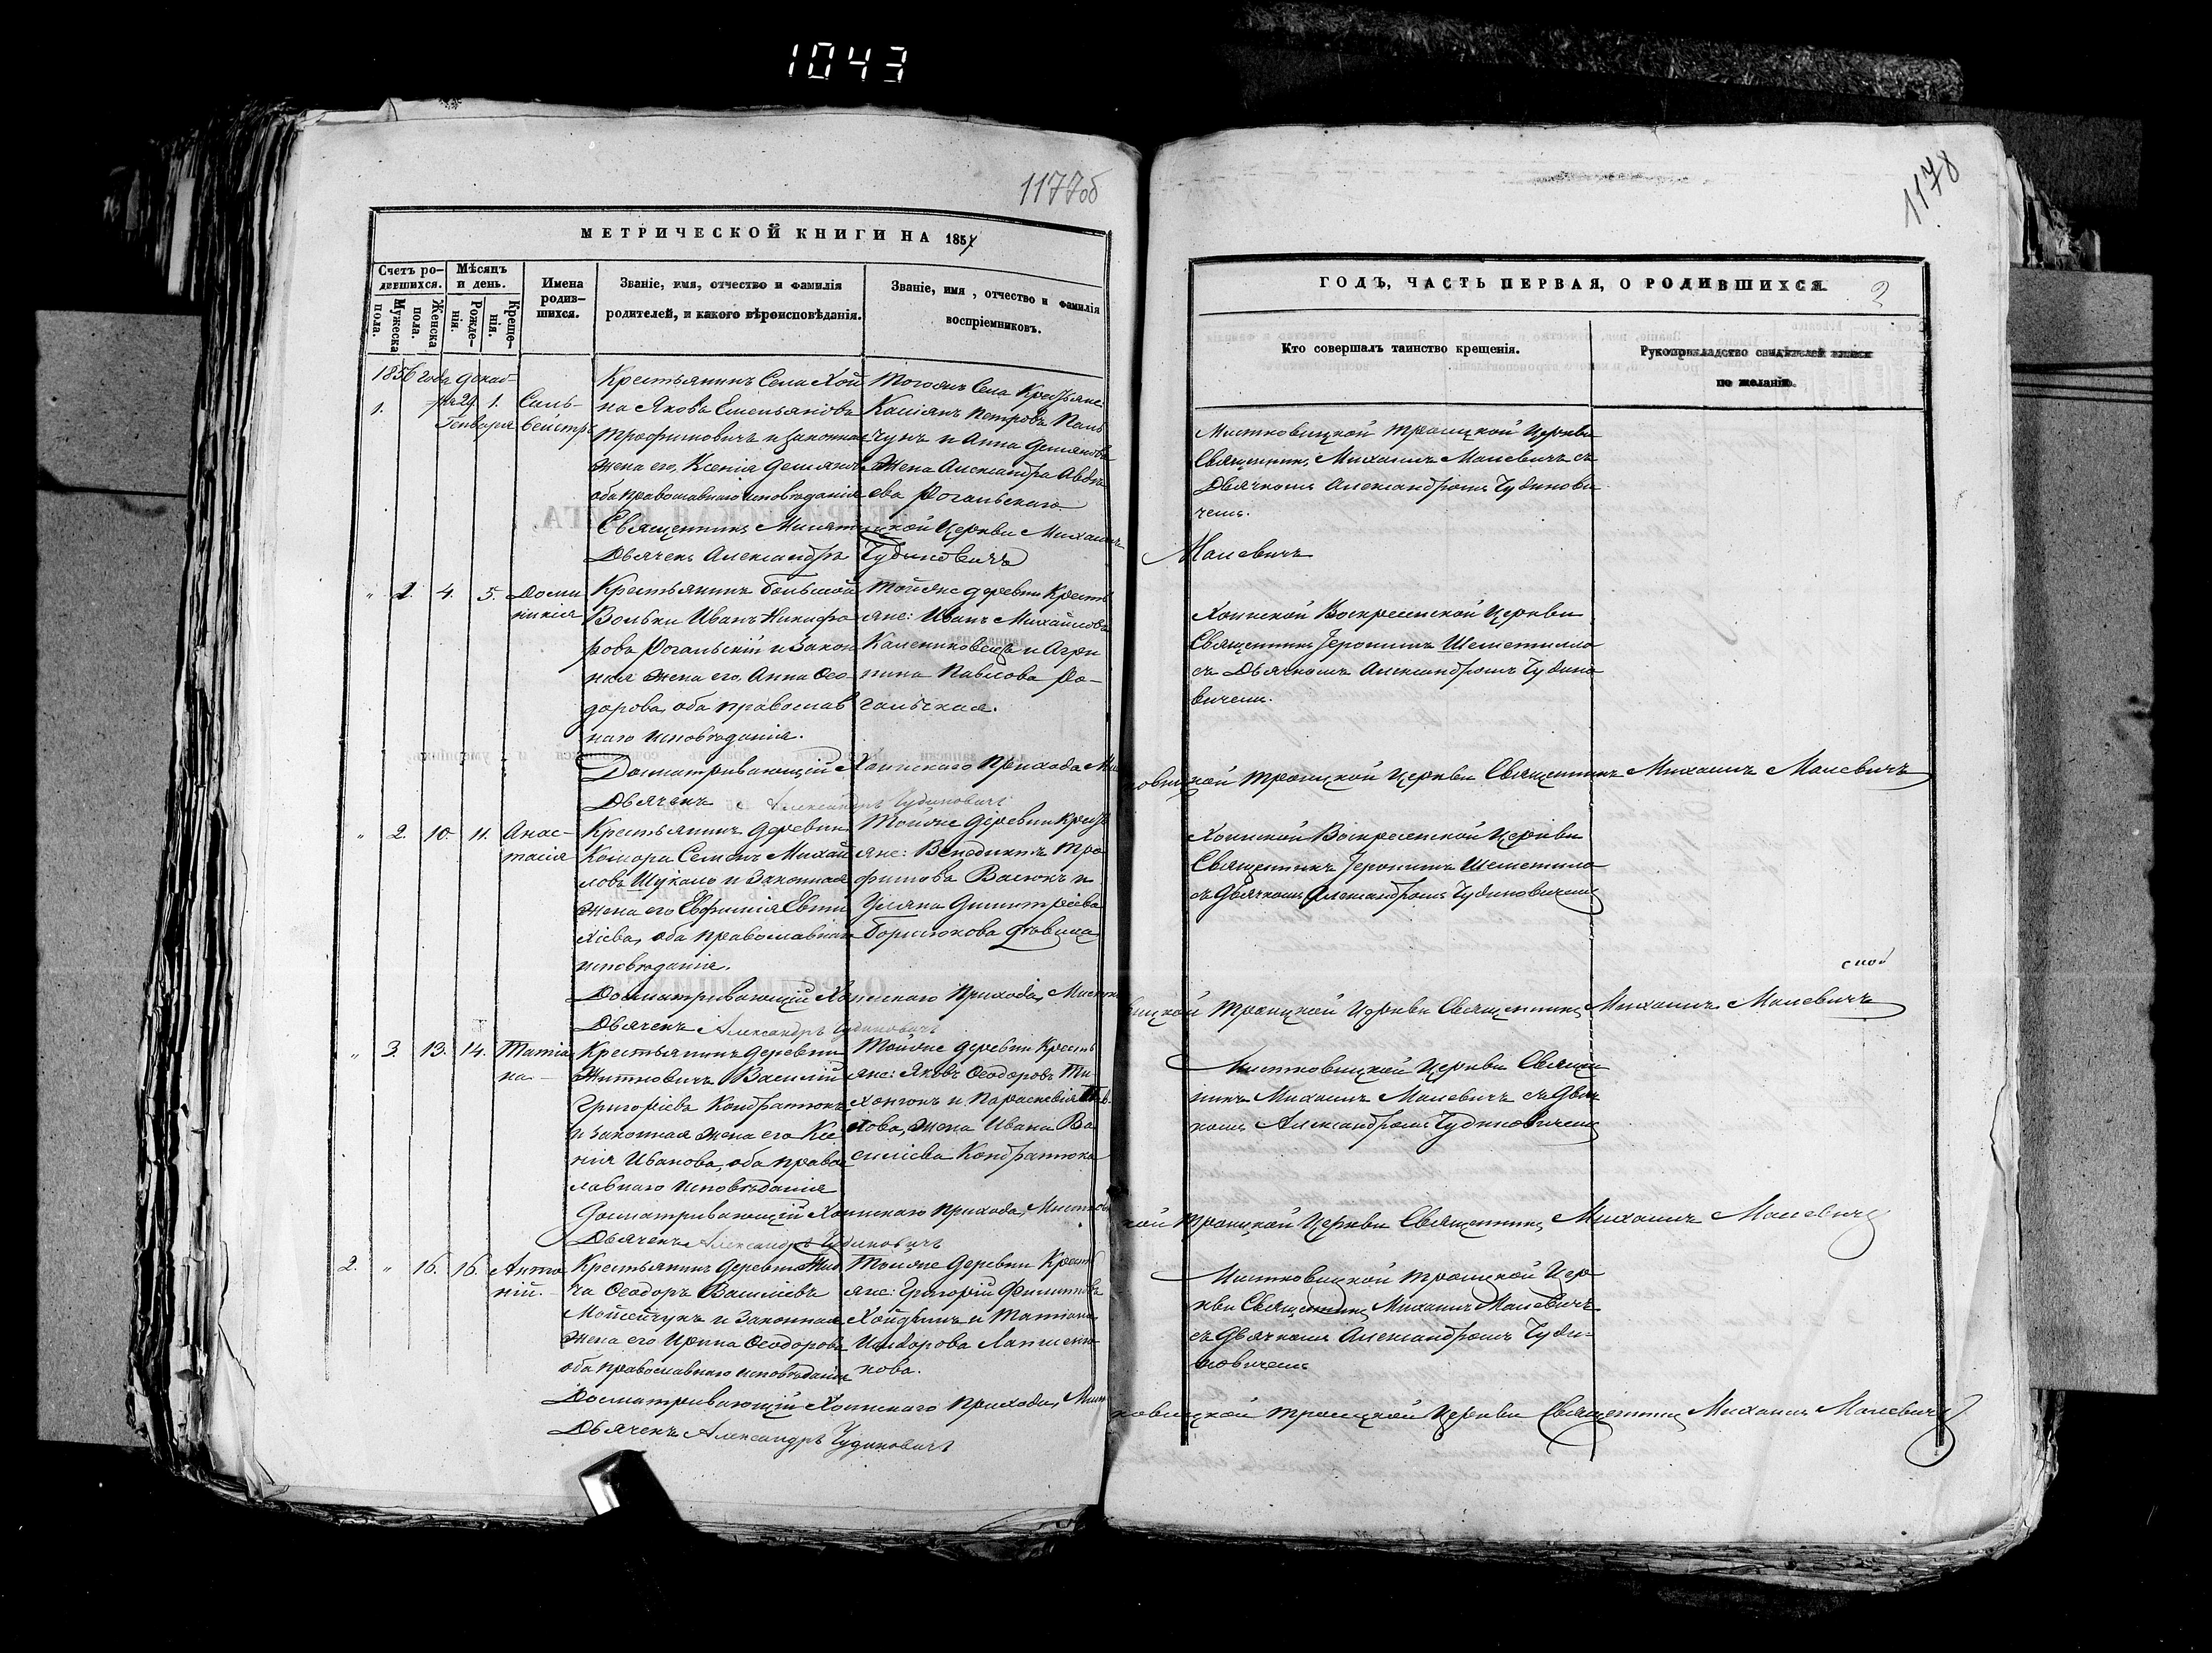 1043
1177об
МЕТРИЧЕСКОЙ КНИГИ НА 1857
Счетъ ро-
дившихся.
Мужеска
пола.
Женска
пола.
Мѣсяцъ
и день.
Рожде-
нія.
Креще-
нія.
Имена
родив-
шихся.
Званіе, имя, отчество и фамилія
родителей, и какого вѣроисповѣданія.
Званіе, имя, отчество и фамилія
воспріемниковъ.
1856 года декаб-
1. ря 29. 1. Силь-
Генваря вестръ
Крестьянинъ Села Хой
на Яковъ Емельяновъ
Трофимовичъ и законная
жена его, Ксенія Демянов
оба православнаго исповѣданія
Тогожъ Села Крестьяне
Касіянъ Петровъ
и Анна Демянова
жена Александра Авдѣ
ева Рогальскаго
Священникъ Мистковицкой Церкви Михаилъ
Дьячекъ Александръ Чудиновичъ
" 1. 4. 5. Доми
никія
Крестьянинъ Большой
Вольки Иванъ Никифо
ровъ Рогальскій и закон
ная жена его, Анна Ѳео
дорова, оба православ
наго исповѣданія.
Тойже деревни Кресть
яне: Иванъ Михайловъ
и Агри
пина Павлова Ро-
гальская.
Досматривающій Хойнскаго Прихода Мист
Дьячекъ Александръ Чудиновичъ
" 2. 10. 11. Анас-
тасія
Крестьянинъ деревни
Коморы Семенъ Михай
ловъ Шукало и Законная
жена его Евфимія Евти
хіева, оба православнаго
исповѣданія.
Тойже деревни Кресть
яне: Венедиктъ Тро
фимовъ Васюкъ и
Уляна Димитріева
Борисюкова дѣвица
Досматривающій Хойнскаго Прихода, Мистко
Дьячекъ Александръ Чудиновичъ
" 3. 13. 14. Татіа
на
Крестьянинъ деревни
Житновичъ Василій
Григоріевъ Кондратюкъ
и законная жена его Ксе
нія Иванова, оба право
славнаго исповѣданія
Тойже деревни Кресть
яне: Яковъ Ѳеодоровъ Ти-
хонюкъ и Параскевія
жена Ивана Ва
силіева Кондратюка
Досматривающій Хойнскаго Прихода, Мистков
Дьячекъ Александръ Чудиновичъ
2. " 16. 16. Анто
ній.
Крестьянинъ деревни Жид
ча Ѳеодоръ Василіевъ
Мойсейчукъ и Законная
жена его Ирина Ѳеодорова
оба православнаго исповѣданія
Тойже деревни Кресть
яне: Григорій Филиповъ
и Татіана
Исидорова
нова.
Досматривающій Хойнскаго Прихода, Мист
Дьячекъ Александръ Чудиновичъ
1178
ГОДЪ, ЧАСТЬ ПЕРВАЯ, О РОДИВШИХСЯ.
Кто совершалъ таинство крещенія.
Рукоприкладство свидѣтелей записи
по желанію.
Мистковицкой Троицкой Церкви
Священникъ Михаилъ Малевичъ съ
Дьячкомъ Александромъ Чудинови
чемъ.
Малевичъ
Хойнской Воскресенской Церкви
Священникъ Іеронимъ Шеметилло
съ Дьячкомъ Александромъ Чудино
вичемъ.
ковицкой Троицкой Церкви Священникъ Михаилъ Малевичъ
Хойнской Воскресенской Церкви
Священникъ Іеронимъ Шеметило
съ Дьячкомъ Александромъ Чудиновичемъ
вицкой Троицкой Церкви Священникъ Михаилъ Малевичъ
Мистковицкой Церкви Священ
никъ Михаилъ Малевичъ съ Дьяч
комъ Александромъ Чудиновичемъ
кой Троицкой Церкви Священникъ Михаилъ Малевичъ
Мистковицкой Троицкой Цер
кви Священникъ Михаилъ Малевичъ
съ Дьячкомъ Александромъ Чуди-
новичемъ
ковицкой Троицкой Церкви Священникъ Михаилъ Малевичъ